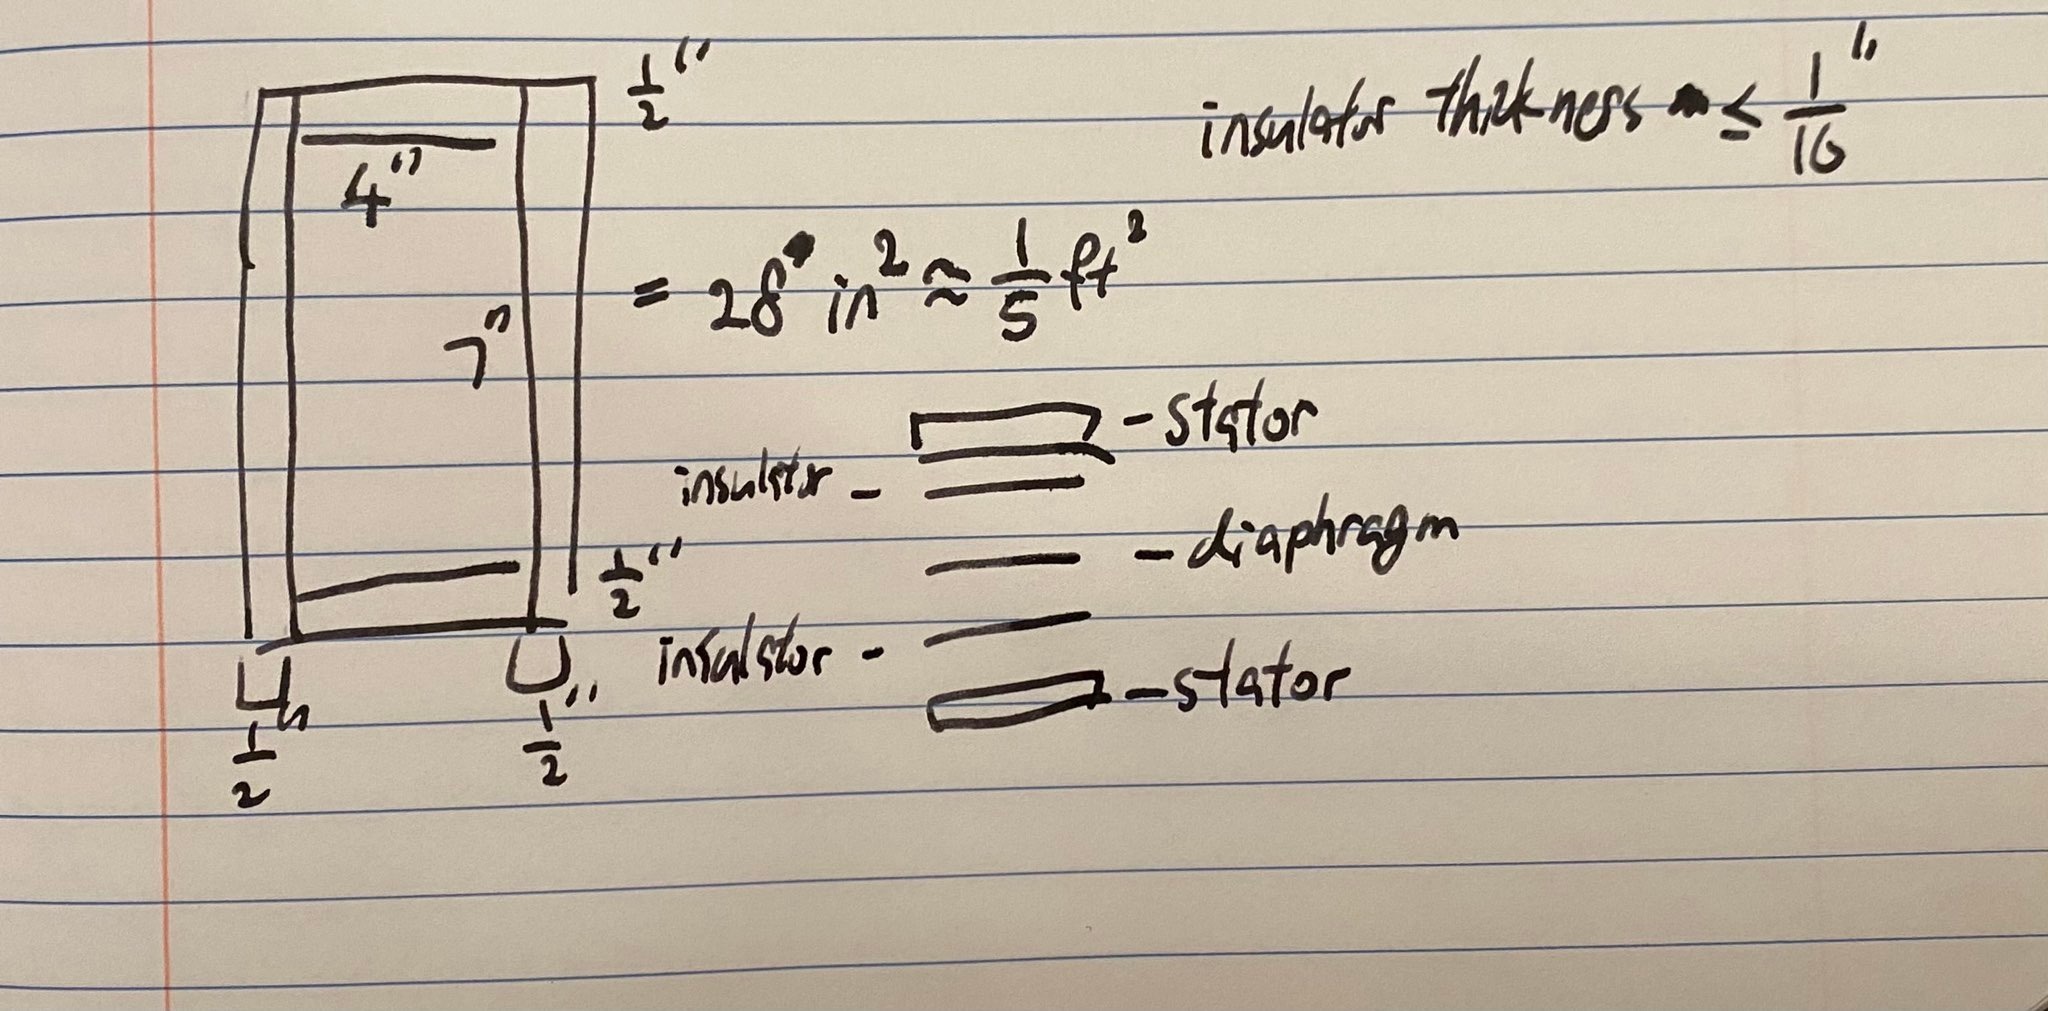 1/2"
insulator thickness ≤ 1/16"
4"
= 28 in² ≈ 1/5 ft²
7"
- stator
insulator -
- diaphragm
1/2"
insulator -
- stator
1/2"
1/2"